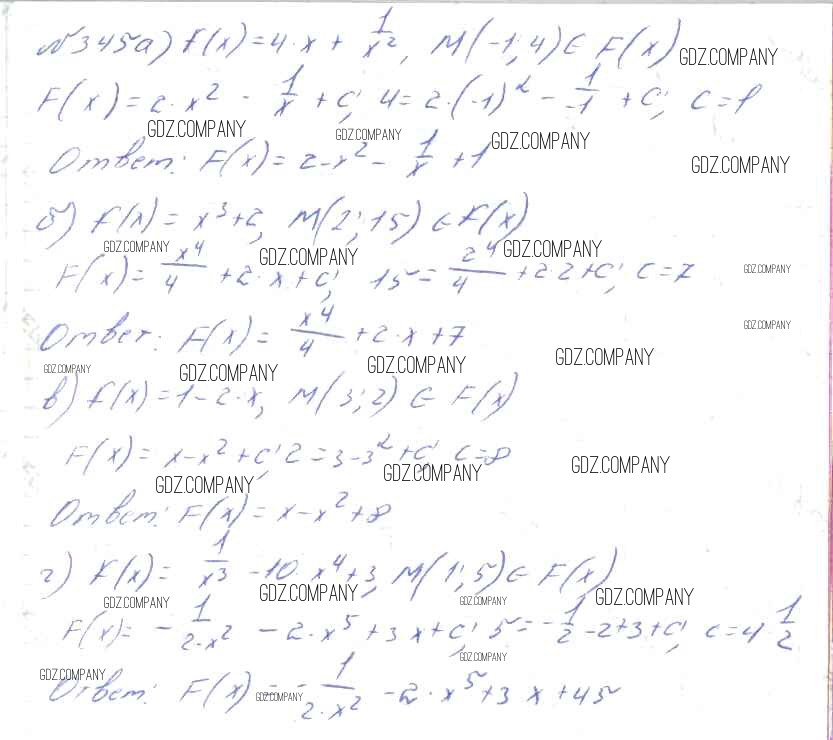 №345а) f(x)=4·x + 1/x², M(-1;4)∈ F(x)
GDZ.COMPANY
F(x)=2·x² - 1/x + C; 4=2·(-1)² - 1/-1 + C; C=1
GDZ.COMPANY GDZ.COMPANY GDZ.COMPANY
Ответ: F(x)=2·x² - 1/x +1
GDZ.COMPANY
б) f(x)= x³+2, M(2;15) ∈F(x)
GDZ.COMPANY GDZ.COMPANY GDZ.COMPANY
F(x)= x⁴/4 +2·x+C; 15= 2⁴/4 +2·2+C; C=7
GDZ.COMPANY
Ответ: F(x)= x⁴/4 +2·x+7
GDZ.COMPANY
GDZ.COMPANY GDZ.COMPANY GDZ.COMPANY GDZ.COMPANY
в) f(x)=1-2·x, M(3;2) ∈ F(x)
F(x)= x-x²+C; 2=3-3²+C; C=8
GDZ.COMPANY GDZ.COMPANY GDZ.COMPANY
Ответ: F(x)= x-x²+8
г) f(x)= 1/x³ -10·x⁴+3, M(1;5)∈ F(x)
GDZ.COMPANY GDZ.COMPANY GDZ.COMPANY GDZ.COMPANY
F(x)= - 1/2·x² -2·x⁵+3x+C; 5=-1/2-2+3+C; C=4 1/2
GDZ.COMPANY
GDZ.COMPANY
Ответ: F(x)= - 1/2·x² -2·x⁵+3x+45
GDZ.COMPANY